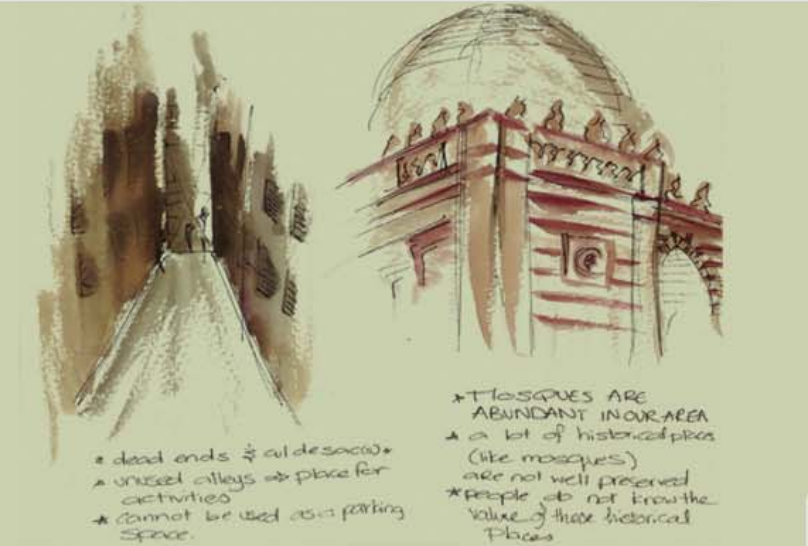 * dead ends & cul de sac(s) *
* unused alleys => place for
activities
* cannot be used as a parking
space.
* MOSQUES ARE
ABUNDANT IN OUR AREA
* a lot of historical places
(like mosques)
are not well preserved
* people do not know the
value of these historical
places